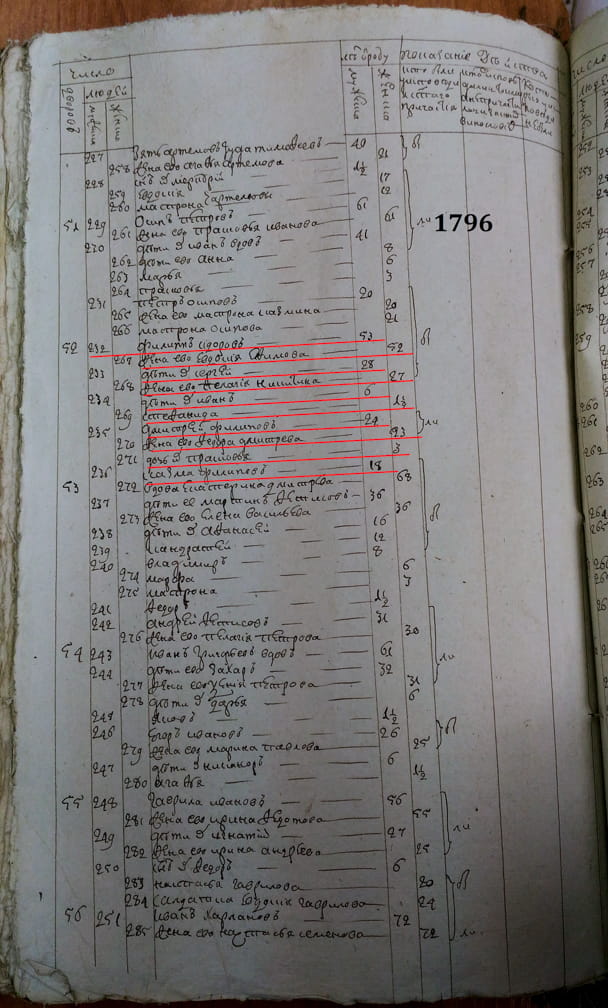 число
людей
дворовъ
мужеска
женска
лѣта отъ роду
мужеска
женска
показанїе дѣйства
1796
227 зять Артемовъ Гуда Тимофеевъ 40
258 жена его Агафья Артемова 21
228 1/2
259 Евдокия 17
260 Матрона Артемова 12
51 229 Осипъ Петровъ 61
261 жена его Прасковья Иванова 61
230 дѣти Иванъ 41
262 дѣти его Анна 8
263 Марья 6
264 Прасковья 3
231 Петръ Осиповъ 20
265 жена его Матрона 20
266 Матрона Осипова 21
52 232 Филиппъ Сидоровъ 53
267 жена его Евдокия 52
233 дѣти Сергей 28
268 жена его Пелагия Никитина 27
234 дѣти Иванъ 6
269 Степанида 1/2
235 Дмитрей Филиповъ 24
270 жена его Федора Дмитрева 23
271 дочь Прасковья 3
236 Казма Филиповъ 18
53 272 вдова Екатерина Дмитрева 68
237 дѣти ее Мартинъ 36
273 жена его Елена Васильева 36
238 дѣти Афанасей 16
239 Кандратей 12
240 Владимиръ 8
274 Мавра 6
275 Матрона 3
241 Федоръ 1/2
242 Андрей 31
276 жена его Пелагия Петрова 30
54 243 Иванъ Григорьевъ вдовъ 61
244 дѣти его Захаръ 32
277 жена его Ксения Петрова 31
278 дѣти Дарья 6
245 Яковъ 1/2
246 Егоръ Ивановъ 26
279 жена его Марина Павлова 25
247 дѣти Никаноръ 6
280 Агафья 1/2
55 248 Гаврила Ивановъ 56
281 жена его Ирина Федотова 55
249 дѣти Игнатий 27
282 жена его Ирина Андреева 25
250 Федоръ 6
283 Настасья Гаврилова 20
284 салдатка Евдокия Гаврилова 24
56 251 Иванъ Харламовъ 72
285 жена его Настасья Семенова 72